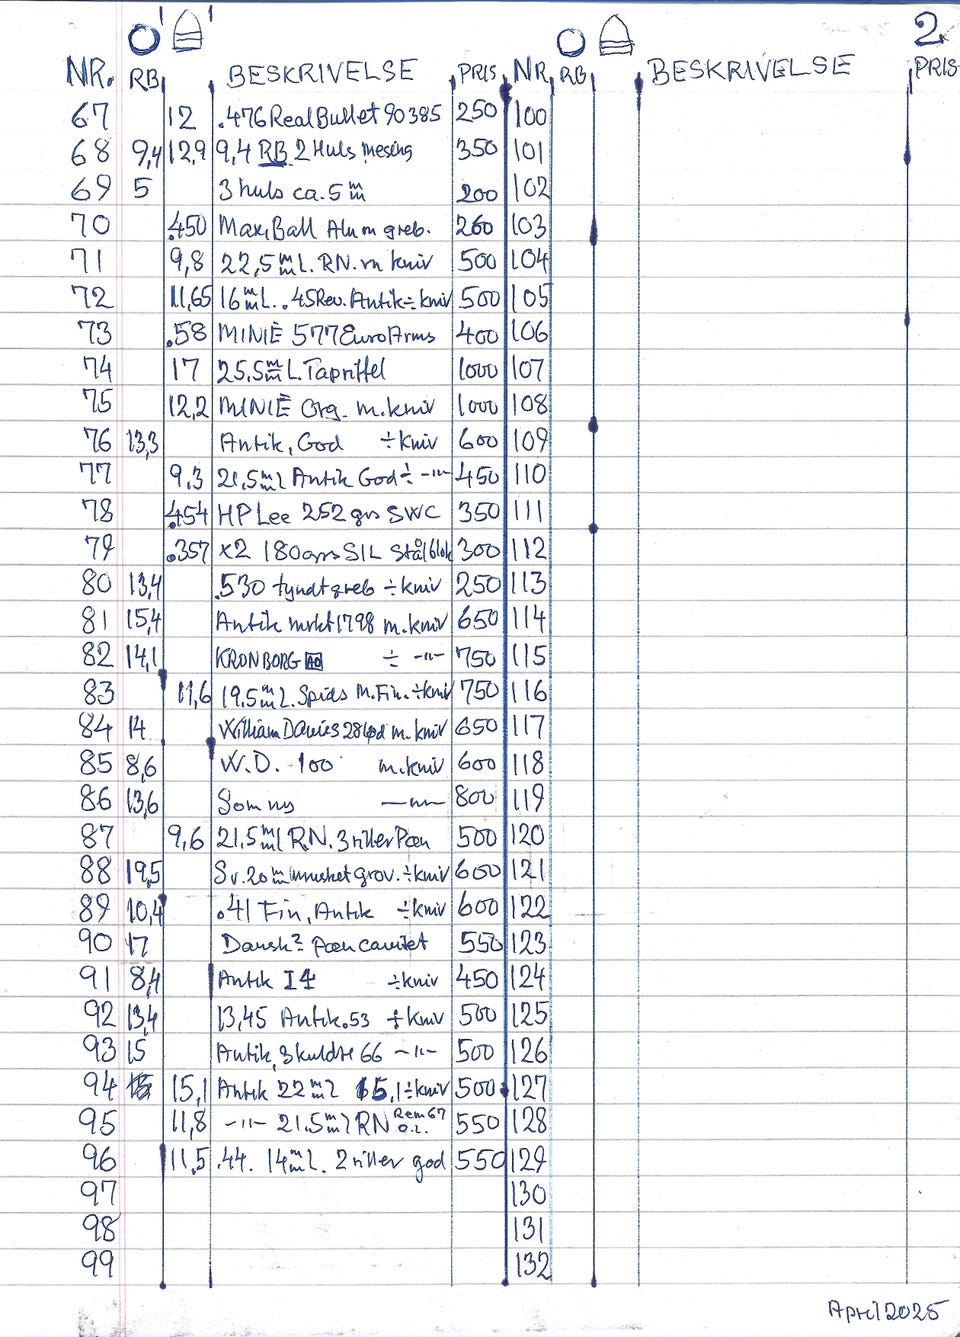 2
NR. RB BESKRIVELSE PRIS NR. RB BESKRIVELSE PRIS
67 12 .476 Real Bullet 90385 250 100
68 9,4 12,9 9,4 RB 2 Huls Mesing 350 101
69 5 3 huls ca. 5 mm 200 102
70 .450 Maxi Ball Alum greb. 260 103
71 9,8 22,5 mm L. RN. m kniv 500 104
72 11,65 16 mm L. .45 Rev. Antik ÷ kniv 500 105
73 .58 MINIÈ 577 EuroArms 400 106
74 17 25,5 mm L. Tapriffel 1000 107
75 12,2 MINIÈ Org. m. kniv 1000 108
76 13,3 Antik, God ÷ kniv 600 109
77 9,3 21,5 mm l Antik God ÷ -"- 450 110
78 .454 HP Lee 252 grs SWC 350 111
79 .357 x2 180 grs SIL Stålblok 300 112
80 13,4 .530 tyndt greb ÷ kniv 250 113
81 15,4 Antik mrkt 1798 m. kniv 650 114
82 14,1 KRONBORG ÷ -"- 750 115
83 11,6 19,5 mm L. Spids M. Fin. ÷ kniv 750 116
84 14 William Davies 28 m. kniv 650 117
85 8,6 W.D. - 100 m. kniv 600 118
86 13,6 Som ny -"- 800 119
87 9,6 21,5 mm l R.N. 3 riller Pæn 500 120
88 19,5 Sv. 20 mm musket grov. ÷ kniv 600 121
89 10,4 .41 Fin, Antik ÷ kniv 600 122
90 17 Dansk? pæn cavitet 550 123
91 8,4 Antik I4 ÷ kniv 450 124
92 13,4 13,45 Antik .53 ÷ kniv 500 125
93 15 Antik, Skuldre 66 -"- 500 126
94 15,1 Antik 22 mm l 15,1 ÷ kniv 500 127
95 11,8 -"- 21,5 mm l RN Rem 67 O.L. 550 128
96 11,5 .44. 14 mm L. 2 riller god 550 129
97 130
98 131
99 132
April 2025